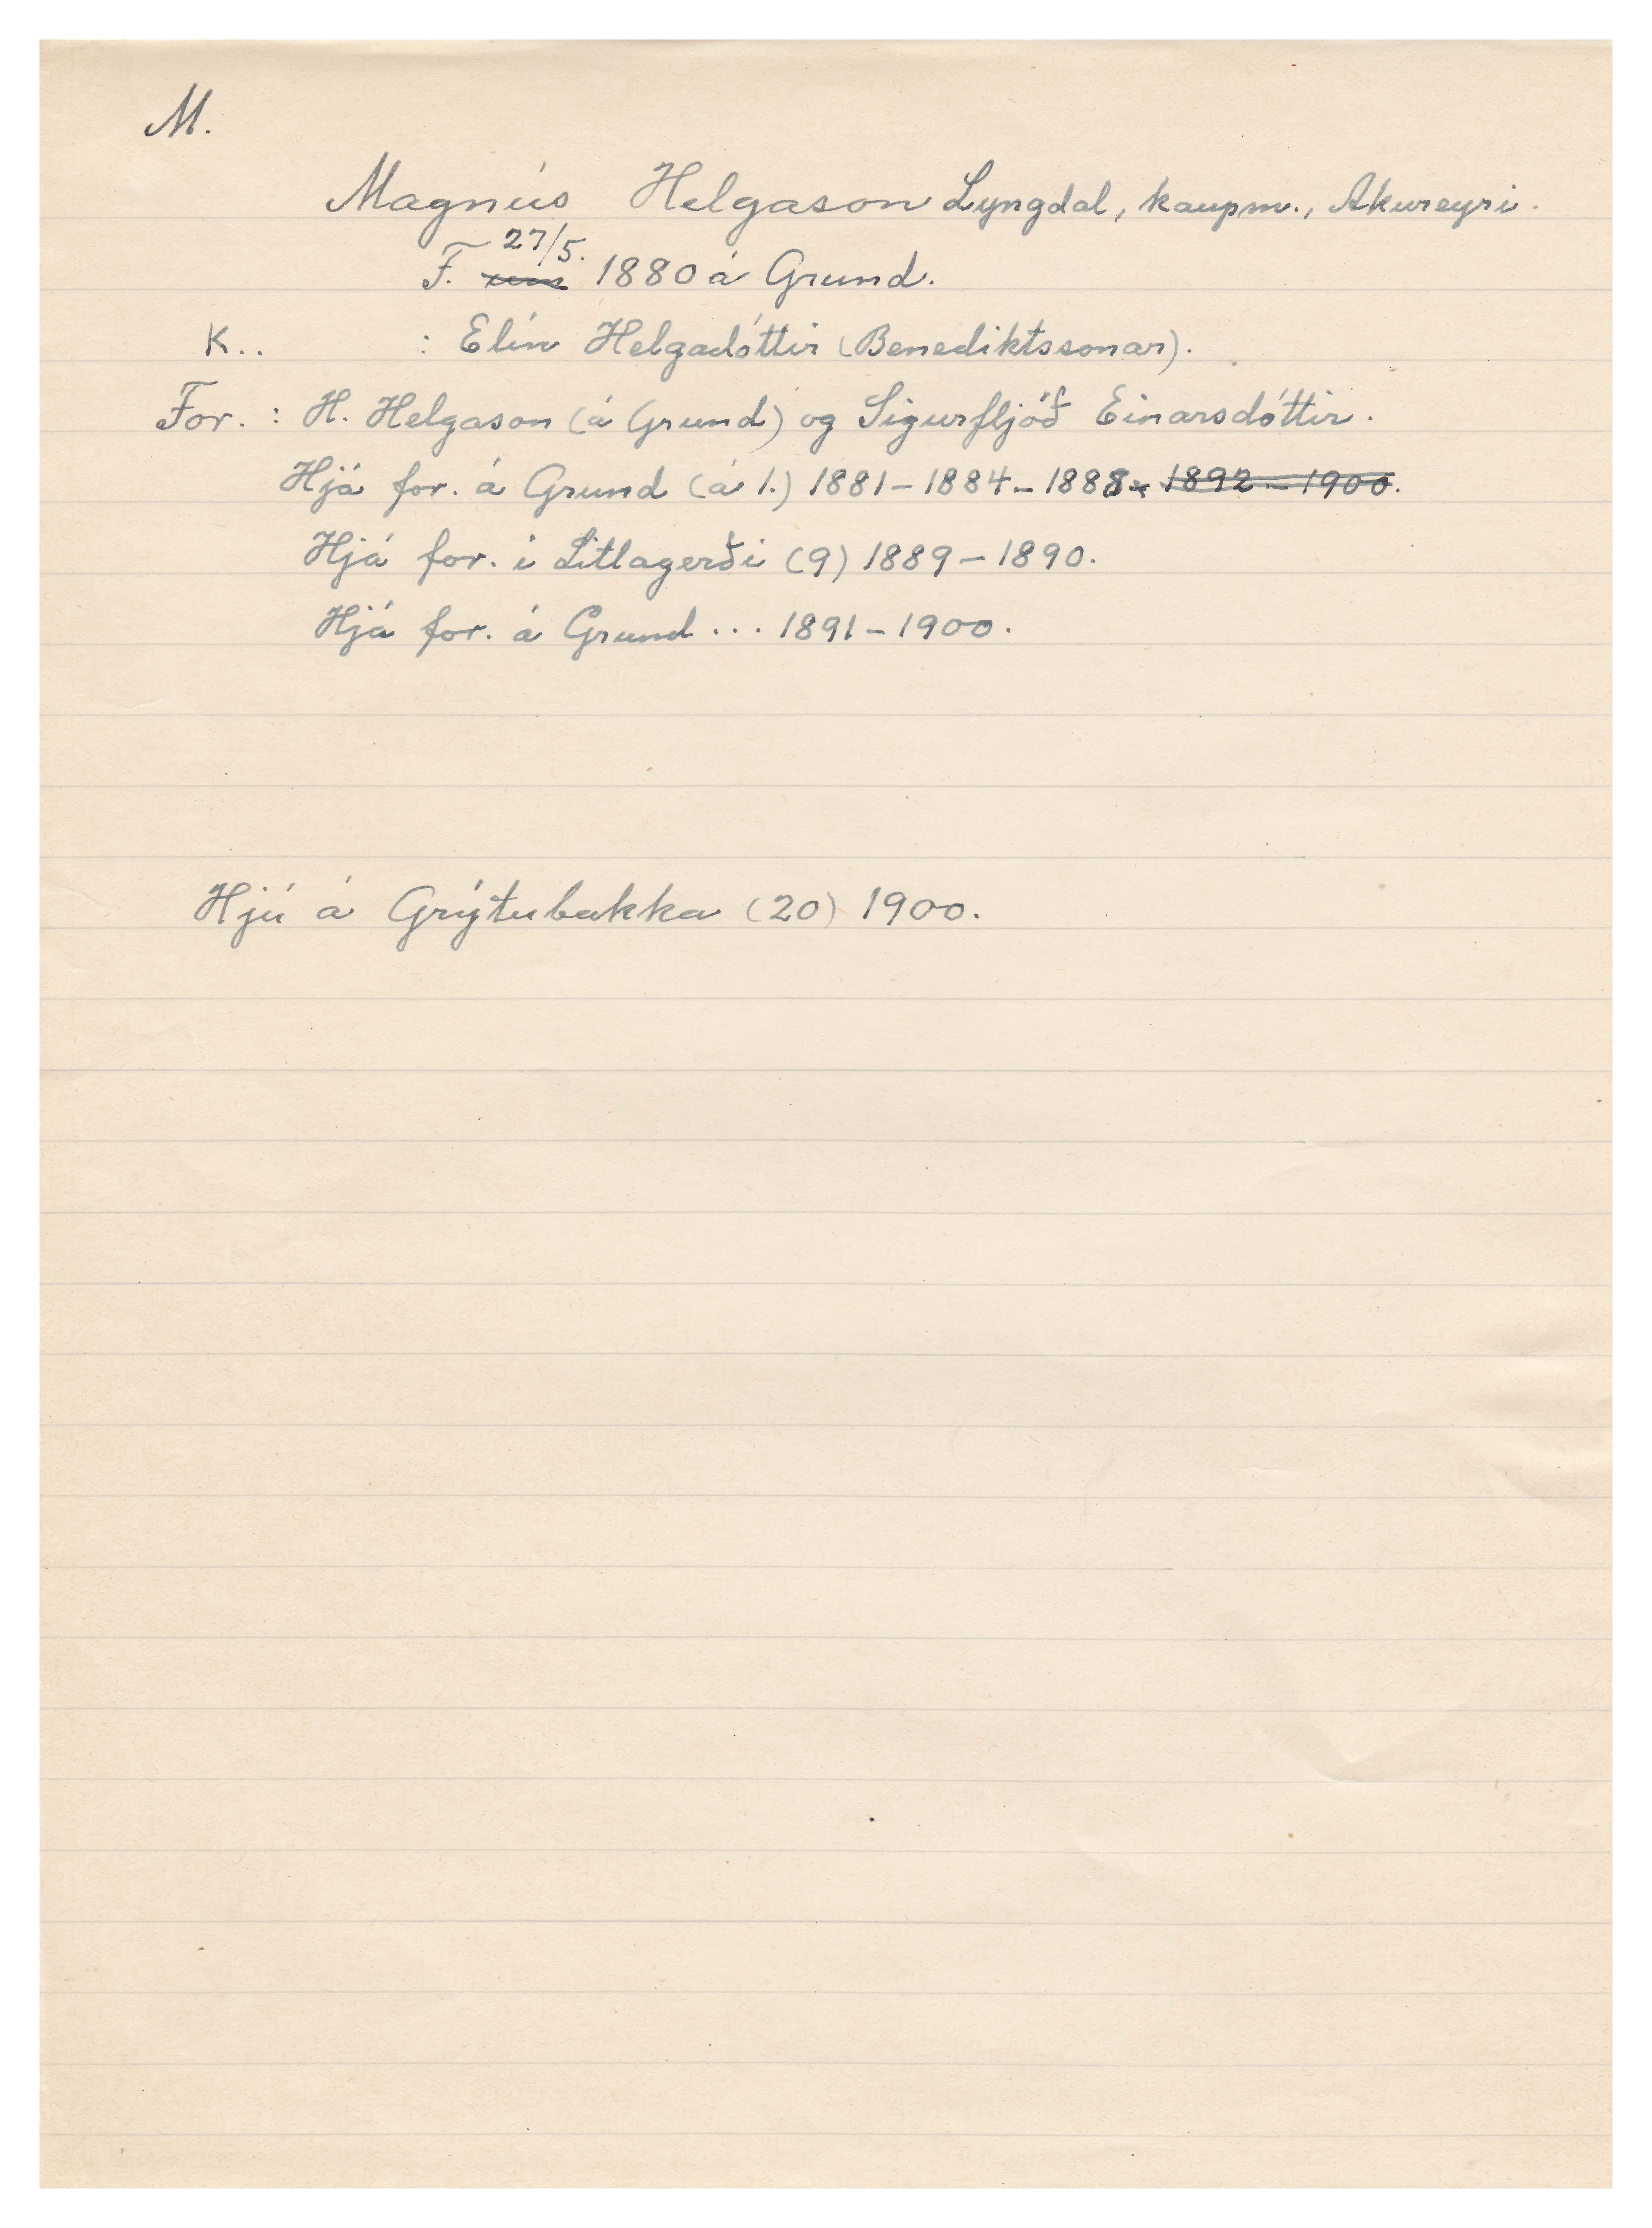 M.
Magnús Helgason Lyngdal, kaupm., Akureyri.
F. ~~um~~ 27/5. 1880 á Grund.
K.. : Elín Helgadóttir (Benediktssonar).
For. : H. Helgason (á Grund) og Sigurfljóð Einarsdóttir.
Hjá for. á Grund (á 1.) 1881 - 1884 - 1888 ~~1892 - 1900~~.
Hjá for. í Litlagerði (9) 1889 - 1890.
Hjá for. á Grund ... 1891 - 1900.
Hjú á Grýtubakka (20) 1900.